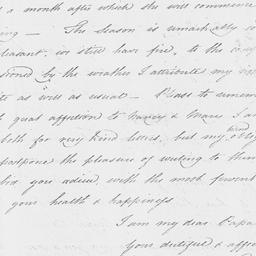 a month after which she will commence
ing — The Season is remarkably
leasant, we still have fire, to the
sioned by the weather I attribute my
as well as usual — Please to remem
great affection to Nancy & Mary I am
both for very kind letters, but my kind
postpone the pleasure of writing to them
bid you adieu, with the most fervent
your health & happiness
I am my dear Papa
Your dutiful & affec